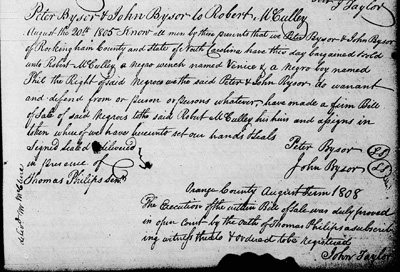 J Taylor
Peter Bysor & John Bysor to Robert McCulley
August the 20th 1805 Know all men by these presents that we Peter Bysor & John Bysor
of Rockingham County and State of North Carolina have this day bargained & sold
unto Robert McCulley, a negro wench named Venice & a negro boy named
Phil the Right of said Negroes we the said Peter & John Bysor do warant
and defend from or person or persons whatever, have made a firm Bill
of Sale of said Negroes to the said Robert McCulley his heirs and assigns in
token whereof we have hereunto set our hands & seals
Signed Seald & delivered
in Presence of
Thomas Philips Senr
Peter Bysor
John Bysor
Orange County August Term 1808
The Execution of the within Bill of Sale was duly proved
in open Court by the oath of Thomas Philips a subscrib
ing witness thereto & ordered to be registered
John Taylor